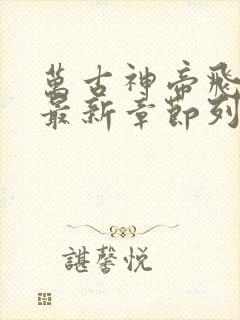 萬古神帝飛
最新章節列
諶馨悅